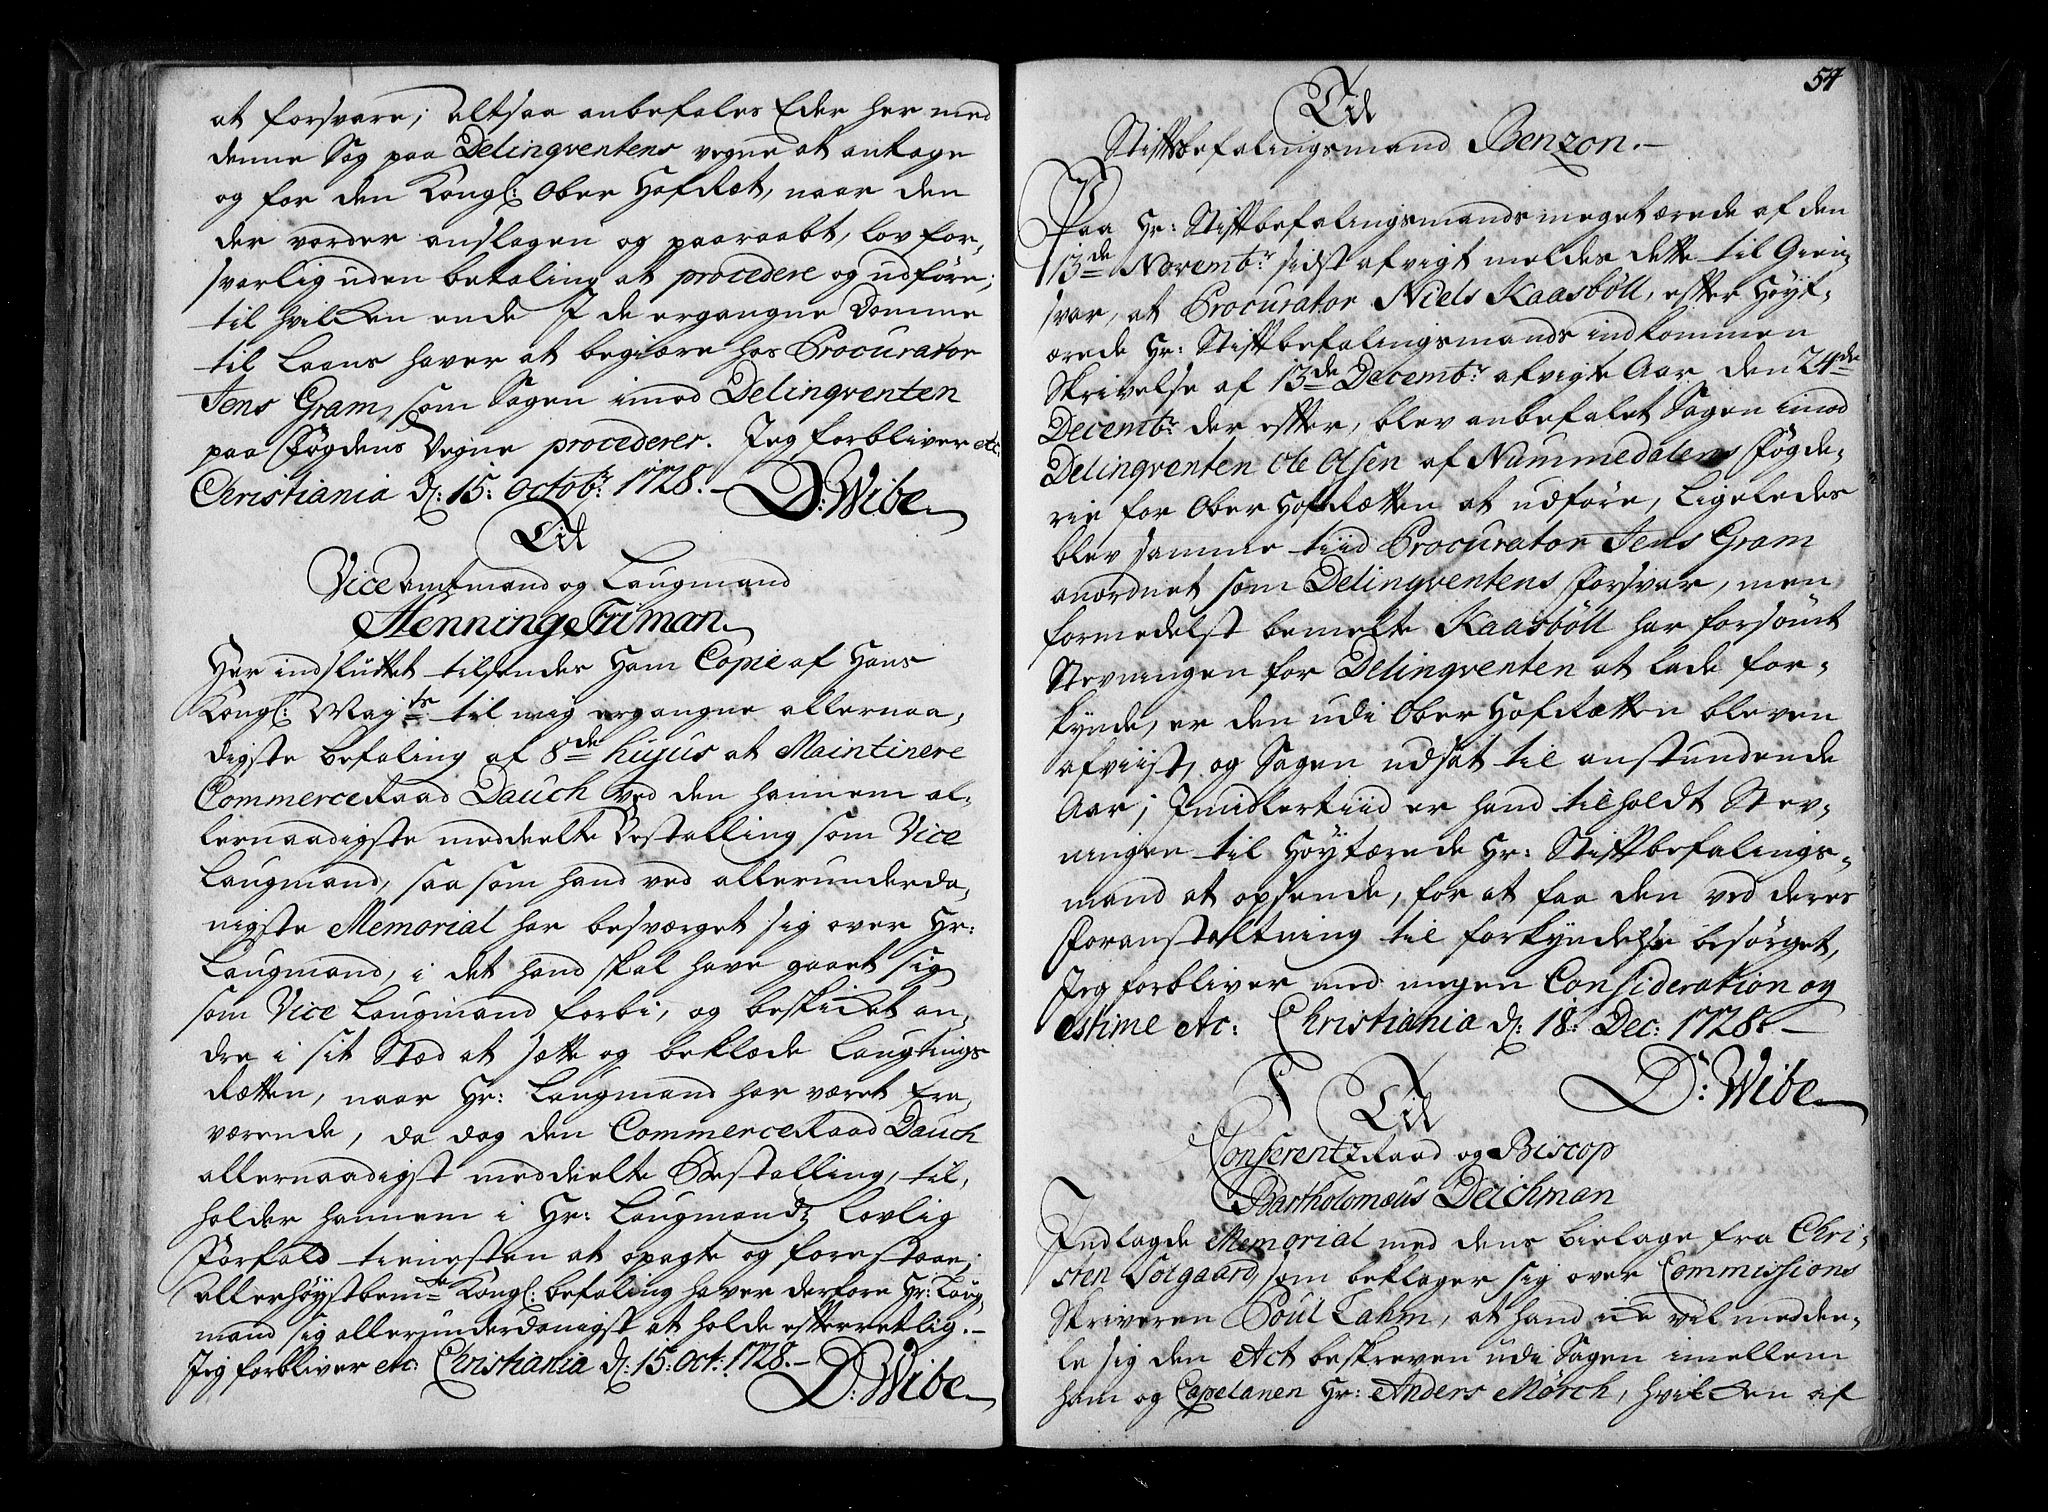 at forsvare; altsaa anbefales Eder her med
denne Sag paa Delinqventens vegne at antage
og for den Kongl: Ober Hof Ræt, naar den
der vorder anslagen og paaraabt, lov for,
svarlig uden betaling at procedere og udføre;
til hvilken ende I de ergangne Domme
til Laans haver at begiære hos Procurator
Jens Gram, som Sagen imod Delinqventen
paa Fogdens Vegne procederer. Jeg forbliver etc:
Christiania d: 15: Octobr: 1728.-
D: Wibe
Til
Vice Amtmand og Laugmand
Henning Friman
Her indsluttet tilsendes Ham Copie af Hans
Kongl: Mayts til mig ergangne allernaa,
digste befaling af 8de hujus at Maintinere
Commerce Raad Dauch ved den hannem al,
lernaadigste meddeelte Bestalling som Vice
Laugmand, saa som hand ved allerunderda,
nigste Memorial har besværget sig over Hr:
Laugmand, i det hand skal have gaaet sig
som Vice Laugmand forbi, og beskicket an,
dre i sit Stæd at sætte og beklæde Laugtings
Rætten, naar Hr: Laugmand har været fra,
værende, da dog den Commerce Raad Dauch
allernaadigst meddeelte Bestalling, til,
holder hannem i Hr: Laugmands lovlig
Forfald tienesten at opagte og forestaae;
allerhøystbemte Kongl: befaling haver derfore Hr: Laug,
mand sig allerunderdanigst at holde efterretlig.-
Jeg forbliver etc: Christiania d: 15: Oct: 1728.-
D: Wibe
54
Til
Stiftsbefalingsmand Benzon.-
Paa Hr: Stiftbefalingsmands meget ærede af den
13de Novembr: sidst afvigt meldes dette til Gien,
svar, at Procurator Niels Kaasbøll, efter Høyt,
ærede Hr: Stiftbefalingsmands indkommen
Skrivelse af 13de Decembr: afvigte Aar, den 24de
Decembr: der efter, blev anbefalet Sagen imod
Delinqventen Ole Olsen af Nummedalens Fogde,
rie for Ober Hof Rætten at udføre, Ligeledes
blev samme tiid Procurator Jens Gram
anordnet som Delinqventens Forsvar, men
formedelst bemelte Kaasbøll har forsømt
Stevningen for Delinqventen at lade for,
kynde, er den udi Ober Hof Rætten bleven
afviist, og Sagen udsat til anstundende
Aar; Imidlertiid er hand tilholdt Stev,
ningen til Høytærede Hr: Stiftbefalings,
mand at opsende, for at faa den ved deres
Foranstaltning til forkyndelse besørget,
Jeg forbliver med megen Consideration og
estime etc: Christiania d: 18: Dec: 1728.-
D: Wibe
Til
Conferentz Raad og Biscop
Bartholomæus Deichman
Indlagde Memorial med dens bielage fra Chri,
sten Solgaard, som beklager sig over Commissions
Skriveren Poul Lahm, at hand icke vil meddee,
le sig den Act beskreven udi Sagen imellem
ham og Capelanen Hr: Anders Mørch, hvilcken af